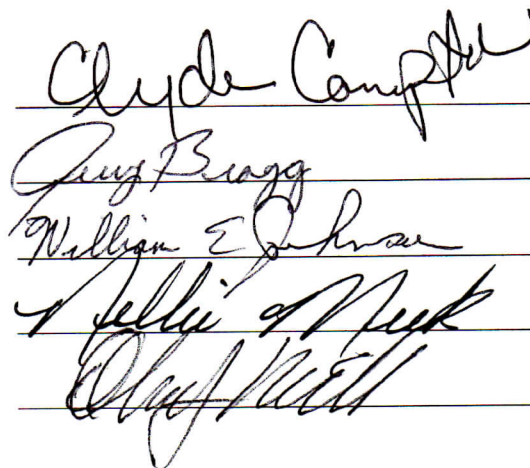 Clyde Campbell
Jerry Bragg
William E Johnson
Nellie Meek